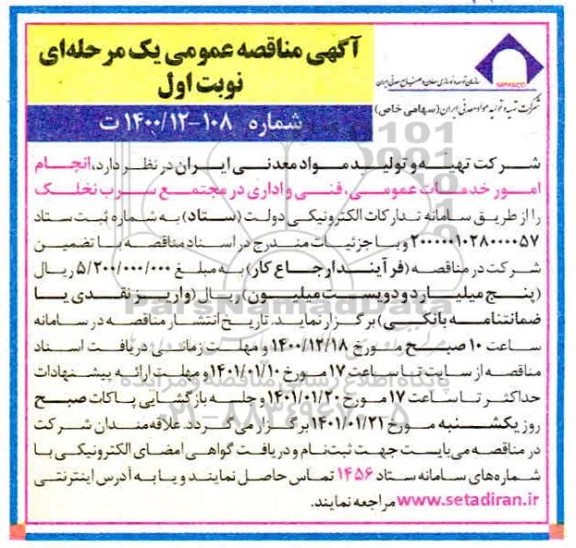 آگهی مناقصه عمومی یک مرحله‌ای
نوبت اول
شماره ۱۰۸-۱۴۰۰/۱۲ ت
IMPASCO
سازمان توسعه و نوسازی معادن و صنایع معدنی ایران
شرکت تهیه و تولید مواد معدنی ایران (سهامی خاص)
شرکت تهیه و تولید مواد معدنی ایران در نظر دارد، انجام
امور خدمات عمومی، فنی و اداری در مجتمع سرب نخلک
را از طریق سامانه تدارکات الکترونیکی دولت (ستاد) به شماره ثبت ستاد
۲۰۰۰۰۰۱۰۲۸۰۰۰۰۵۷ و با جزئیات مندرج در اسناد مناقصه با تضمین
شرکت در مناقصه (فرآیند ارجاع کار) به مبلغ ۵/۲۰۰/۰۰۰/۰۰۰ ریال
(پنج میلیارد و دویست میلیون) ریال (واریز نقدی یا
ضمانتنامه بانکی) برگزار نماید. تاریخ انتشار مناقصه در سامانه
ساعت ۱۰ صبح مورخ ۱۴۰۰/۱۲/۱۸ و مهلت زمانی دریافت اسناد
مناقصه از سایت تا ساعت ۱۷ مورخ ۱۴۰۱/۰۱/۱۰ و مهلت ارائه پیشنهادات
حداکثر تا ساعت ۱۷ مورخ ۱۴۰۱/۰۱/۲۰ و جلسه بازگشایی پاکات صبح
روز یکشنبه مورخ ۱۴۰۱/۰۱/۲۱ برگزار می‌گردد. علاقه‌مندان شرکت
در مناقصه می‌بایست جهت ثبت‌نام و دریافت گواهی امضای الکترونیکی با
شماره‌های سامانه ستاد ۱۴۵۶ تماس حاصل نمایند و یا به آدرس اینترنتی
www.setadiran.ir مراجعه نمایند.
ParsNamadData
پایگاه اطلاع رسانی مناقصه و مزایده
۰۲۱-۸۸۳۴۹۶۷۰-۵